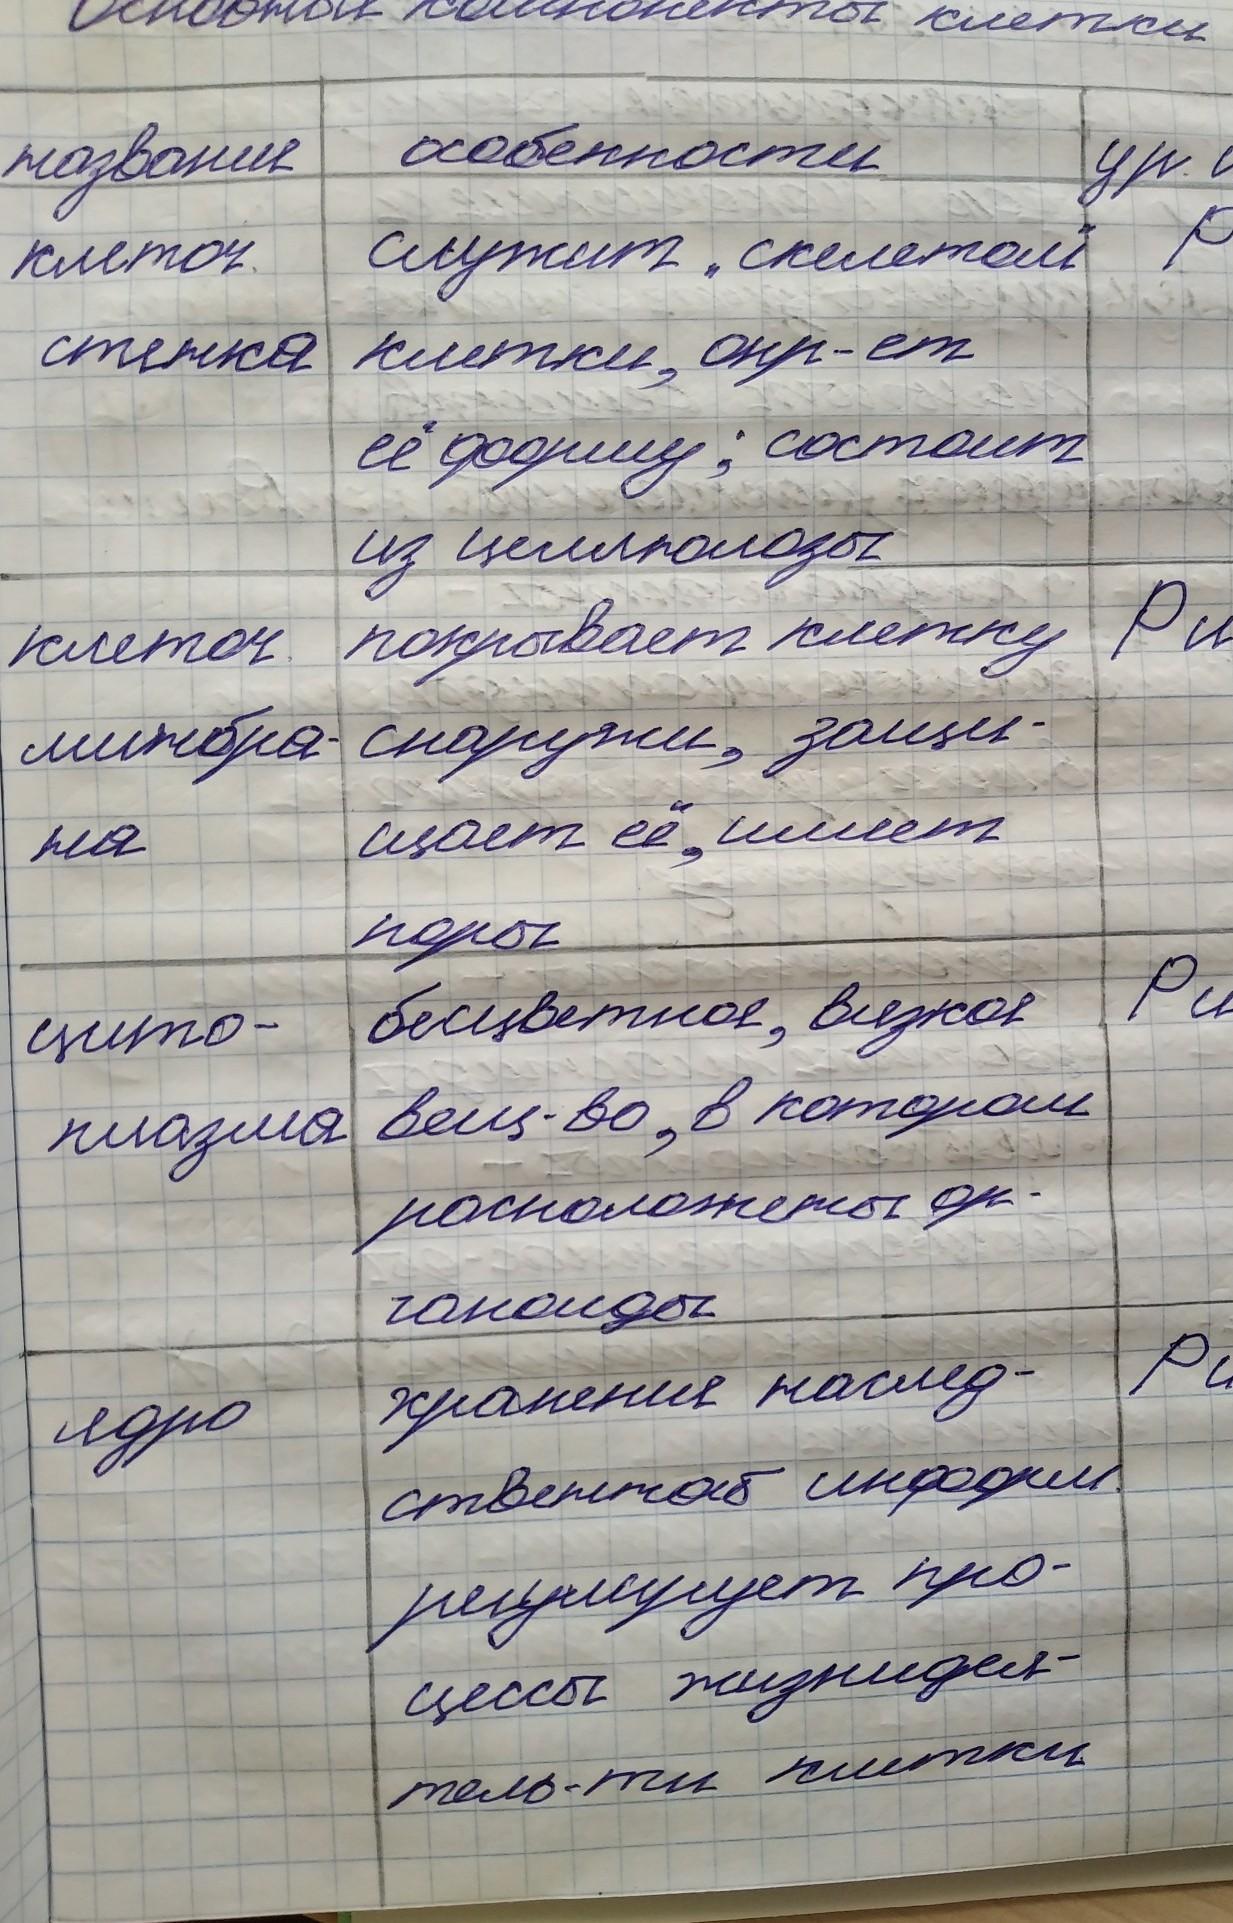 Основные компоненты клетки
название особенности ур.
клеточ. служит „скелетом" Р
стенка клетки, опр-ет
её форму; состоит
из целлюлозы
клеточ. покрывает клетку Р и
мембра- снаружи, защи-
на щает её, имеет
поры
цито- бесцветное, вязкое Р и
плазма вещ-во, в котором
расположены ор-
ганоиды
ядро хранение наслед- Р и
ственной информ.
регулирует про-
цессы жизнидея-
тель-ти клетки